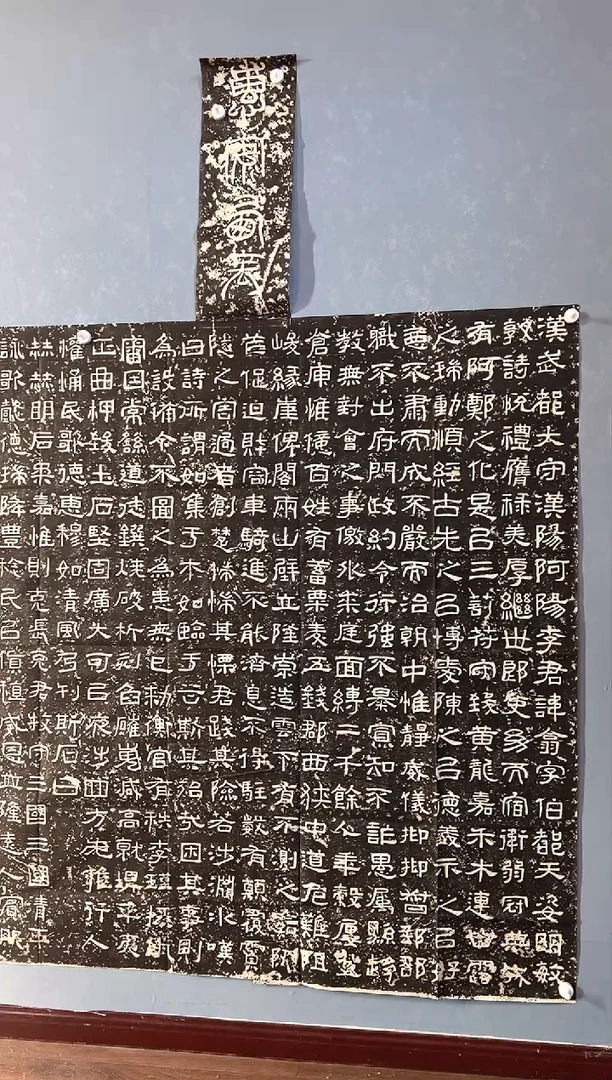 惠安西表
漢武都大守漢陽阿陽李君諱翕字伯都天姿明敏
敦詩悅禮膺祿美厚繼世郎吏幼而宿衛弱冠典城
有阿鄭之化是以三蒞符守致黃龍嘉禾木連甘露
之瑞動順經古先之以博愛陳之以德義示之以好
惡不肅而成不嚴而治朝中惟靜威儀抑抑督郵部
職不出府門政約令行強不暴寡知不詐愚屬縣趨
教無對會之事徼外來庭面縛二千餘人年穀屢登
倉庾惟億百姓有蓄粟麥五錢郡西狹中道危難阻
峻緣崖俾閣兩山壁立隆崇造雲下有不測之谿阨
芒促迫財容車騎進不能濟息不得駐數有顛覆霣
隧之害過者創楚惴惴其慄君踐其險若涉淵冰嘆
曰詩所謂如集于木如臨于谷斯其殆哉困其事則
為設備今不圖之為患無已敕衡官有秩李瑾掾仇
審因常繇道徒鐉燒破析刻臽磪嵬減高就埤平夷
正曲柙致土石堅固廣大可以夜涉四方无雍行人
懽悀民歌德惠穆如清風乃刊斯石曰
赫赫明后柔嘉惟則克長克君牧守三國三國清平
詠歌懿德瑞降豐稔民以貨稙威恩並隆遠人賓服